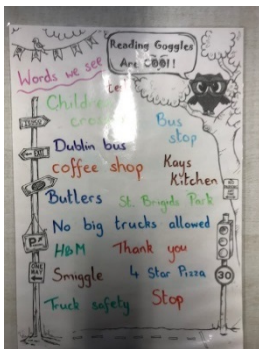 Reading Goggles
Are COOL!
Words we see
Children
crossing
Bus
stop
Dublin bus
coffee shop
Kays
Kitchen
Butlers
St. Brigids Park
No big trucks allowed
H&M
Thank you
Smiggle
4 Star Pizza
Truck safety
Stop
EXIT
P
ONE
WAY
30